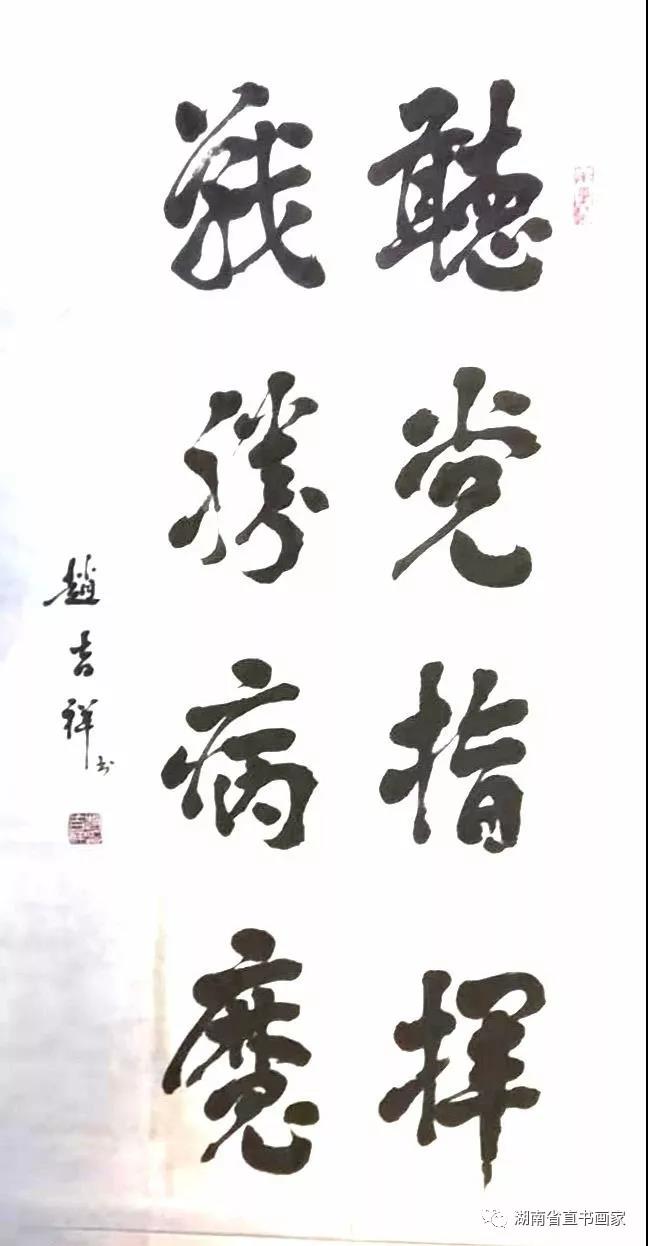 聽党指揮
戰勝病魔
趙吉祥书
湖南省直书画家